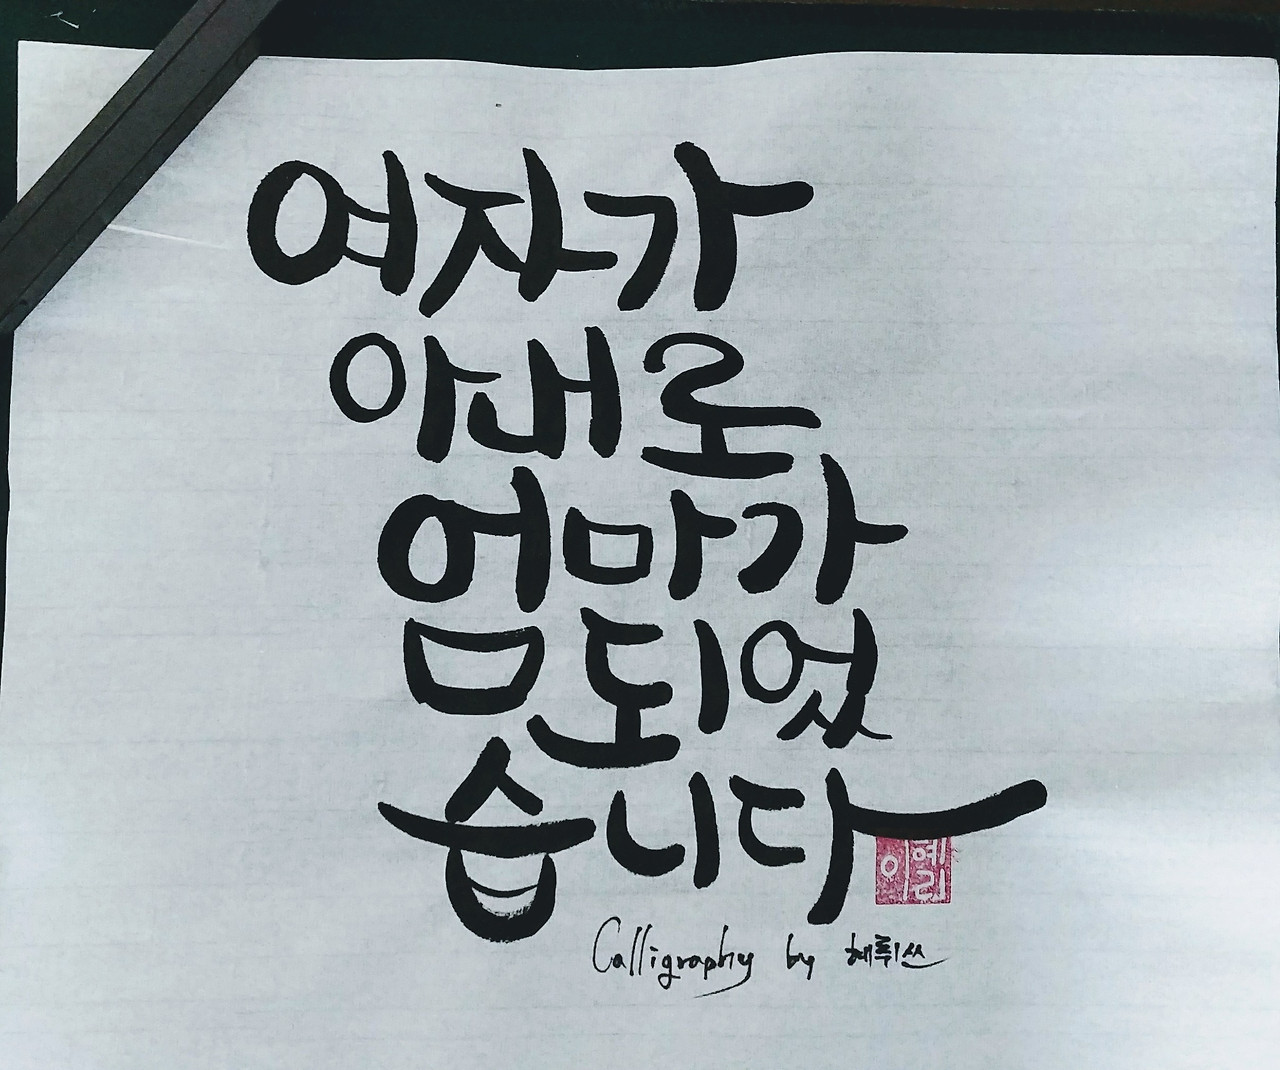 여자가
아내로
엄마가
되었
습니다
이예리
Calligraphy by 혜뤼쓰